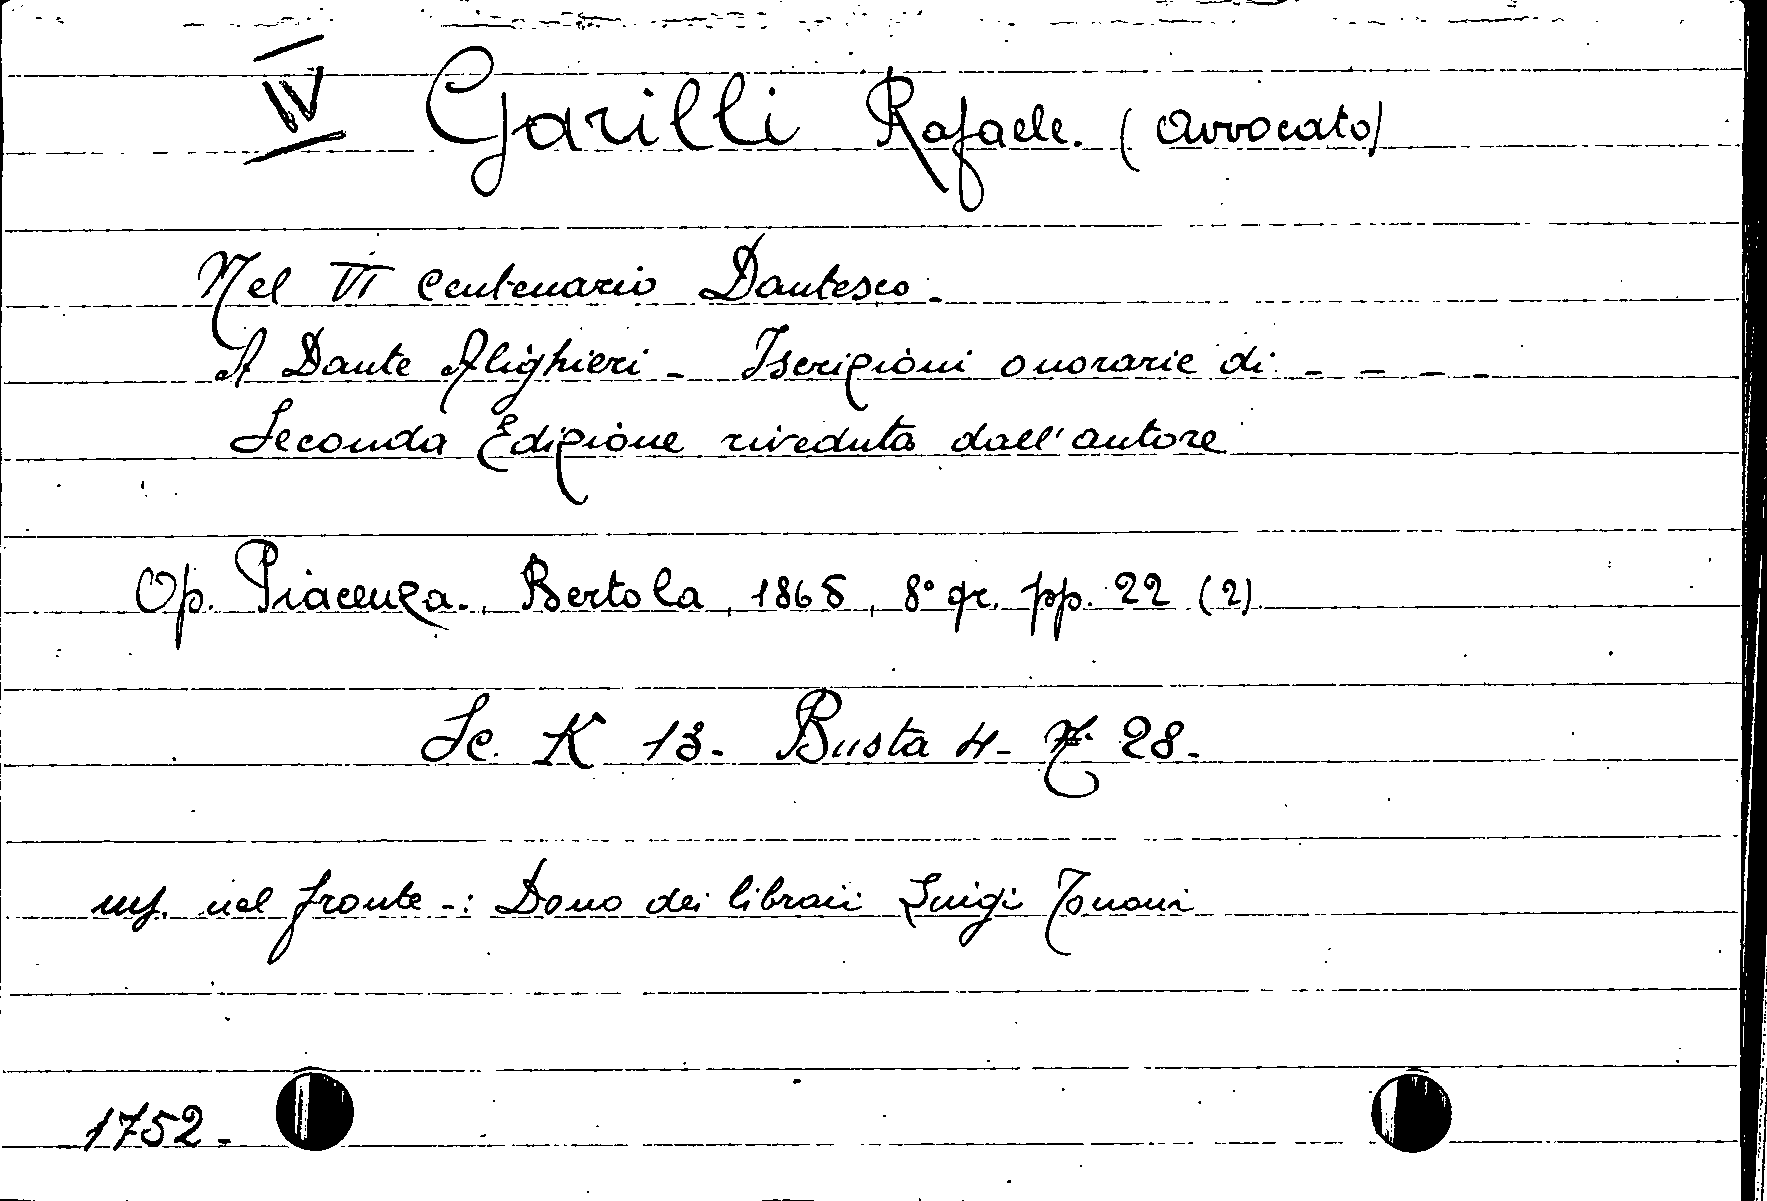 IV Garilli Rafaele. (Avvocato)
Nel VI Centenario Dantesco.
A Dante Alighieri - Iscrizioni onorarie di - - - -
Seconda Edizione riveduta dall'autore
Op. Piacenza., Bertola, 1865, 8° gr. pp. 22 (2)
Sc. K 13. Busta 4 - N. 28.
nel fronte -: Dono dei librai Luigi
1752.